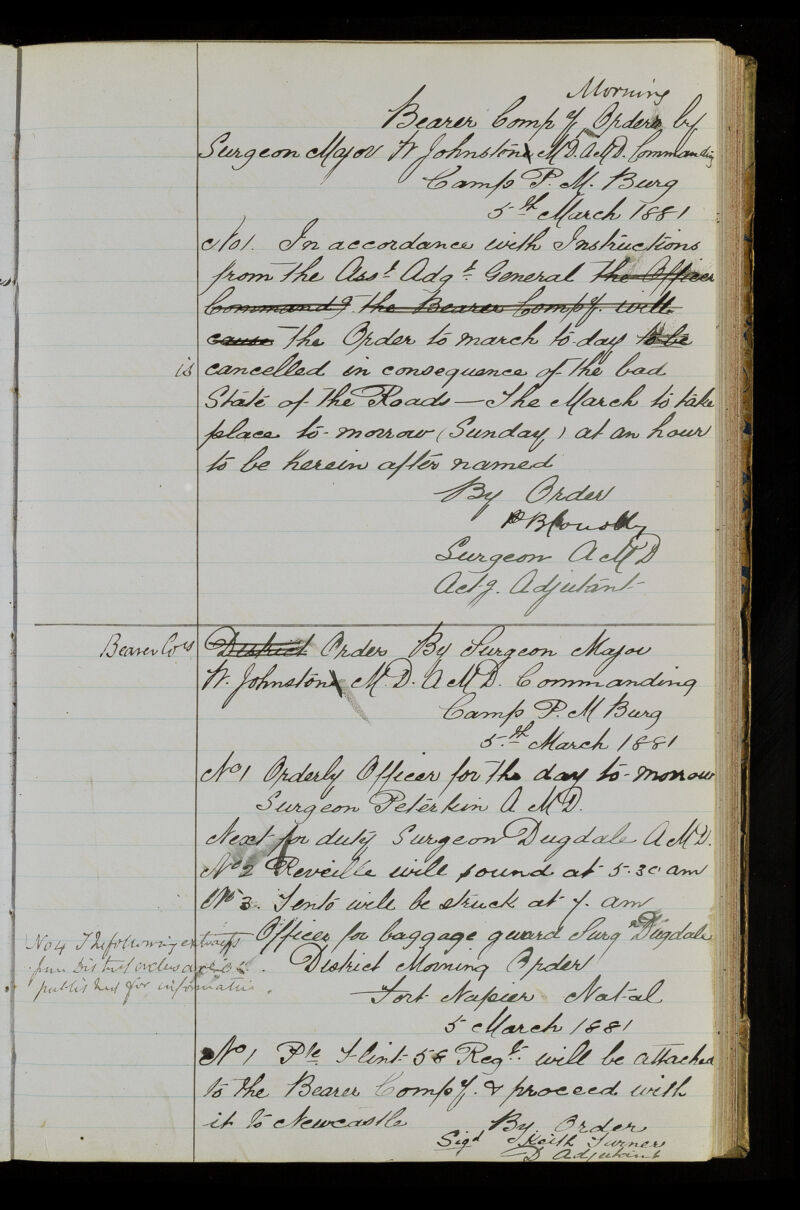 Morning
Bearer Compy Orders by
Surgeon Major W Johnston M.D. A.M.D. Commanding
Camp P. M. Burg
5th March 1881
No 1. In accordance with Instructions
from the Asst Adgt General the Officer
Commandg the Bearer Compy. will
cause the Order to march to day to be
is cancelled in consequence of the bad
State of the Roads — The March to take
place to-morrow (Sunday) at an hour
to be herein after named
By Order
Surgeon A M D
Actg. Adjutant
Bearer Cos District Order By Surgeon Major
W. Johnston M.D. A M D. Commanding
Camp P. M Burg
5th March 1881
No 1 Orderly Officer for the day to-morrow
Surgeon Peterkin A M D.
Next for duty Surgeon Dugdale A M D.
No 2 Reveille will sound at 5.30 am
No 3. Tents will be struck at 7. am
Officer for baggage guard Surg Dugdale
No 4 The following extracts
from District orders are
published for information.
District Morning Order
Fort Napier Natal
5 March 1881
No 1 Pte Flint 58 Regt. will be attached
to the Bearer Compy. & proceed with
it to Newcastle
By Order
Sigd Keith Turner
D Adjutant